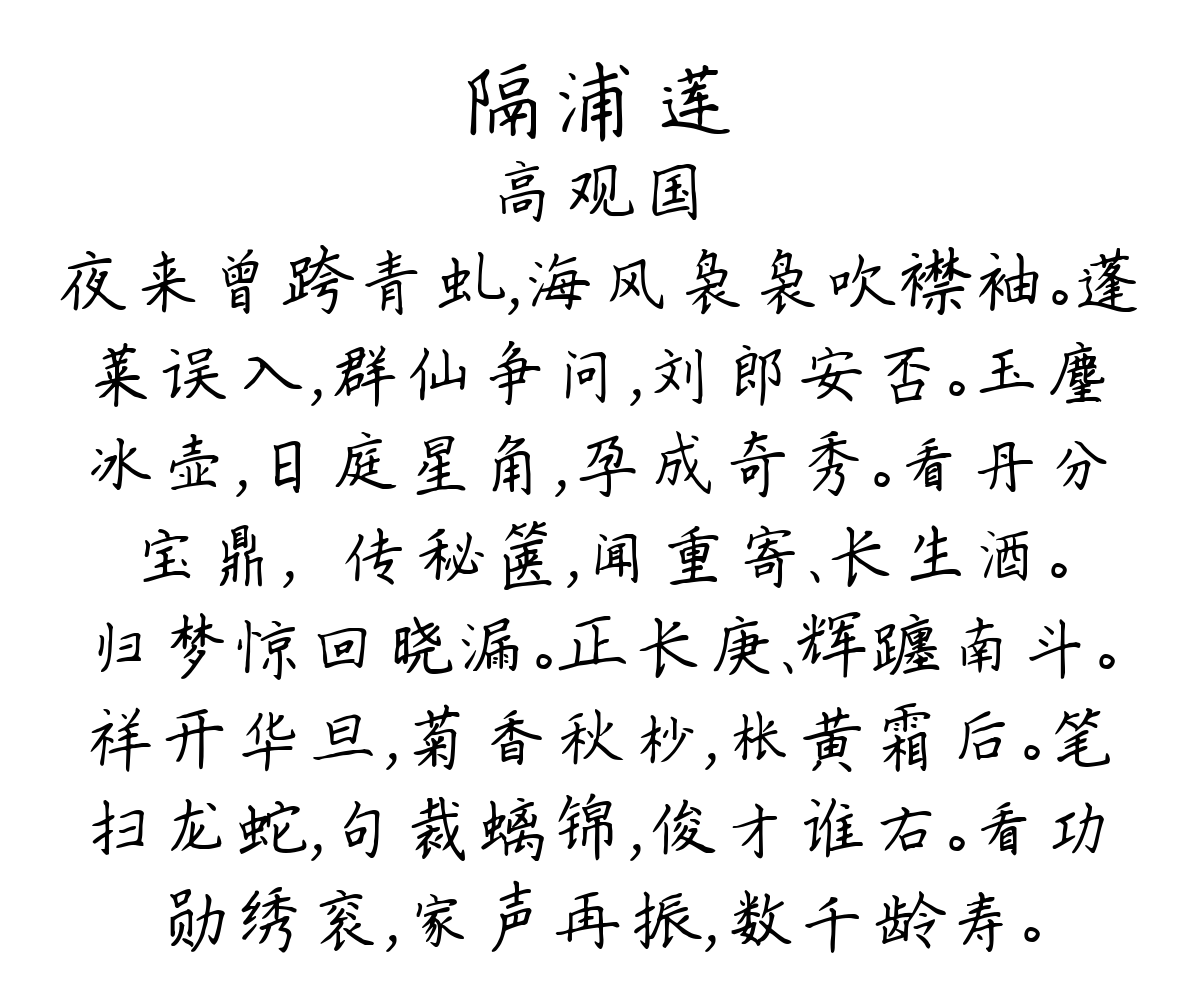 隔浦莲
高观国
夜来曾跨青虬,海风袅袅吹襟袖。蓬
莱误入,群仙争问,刘郎安否。玉麈
冰壶,日庭星角,孕成奇秀。看丹分
宝鼎,传秘箧,闻重寄、长生酒。
归梦惊回晓漏。正长庚、辉躔南斗。
祥开华旦,菊香秋杪,枨黄霜后。笔
扫龙蛇,句裁螭锦,俊才谁右。看功
勋绣衮,家声再振,数千龄寿。